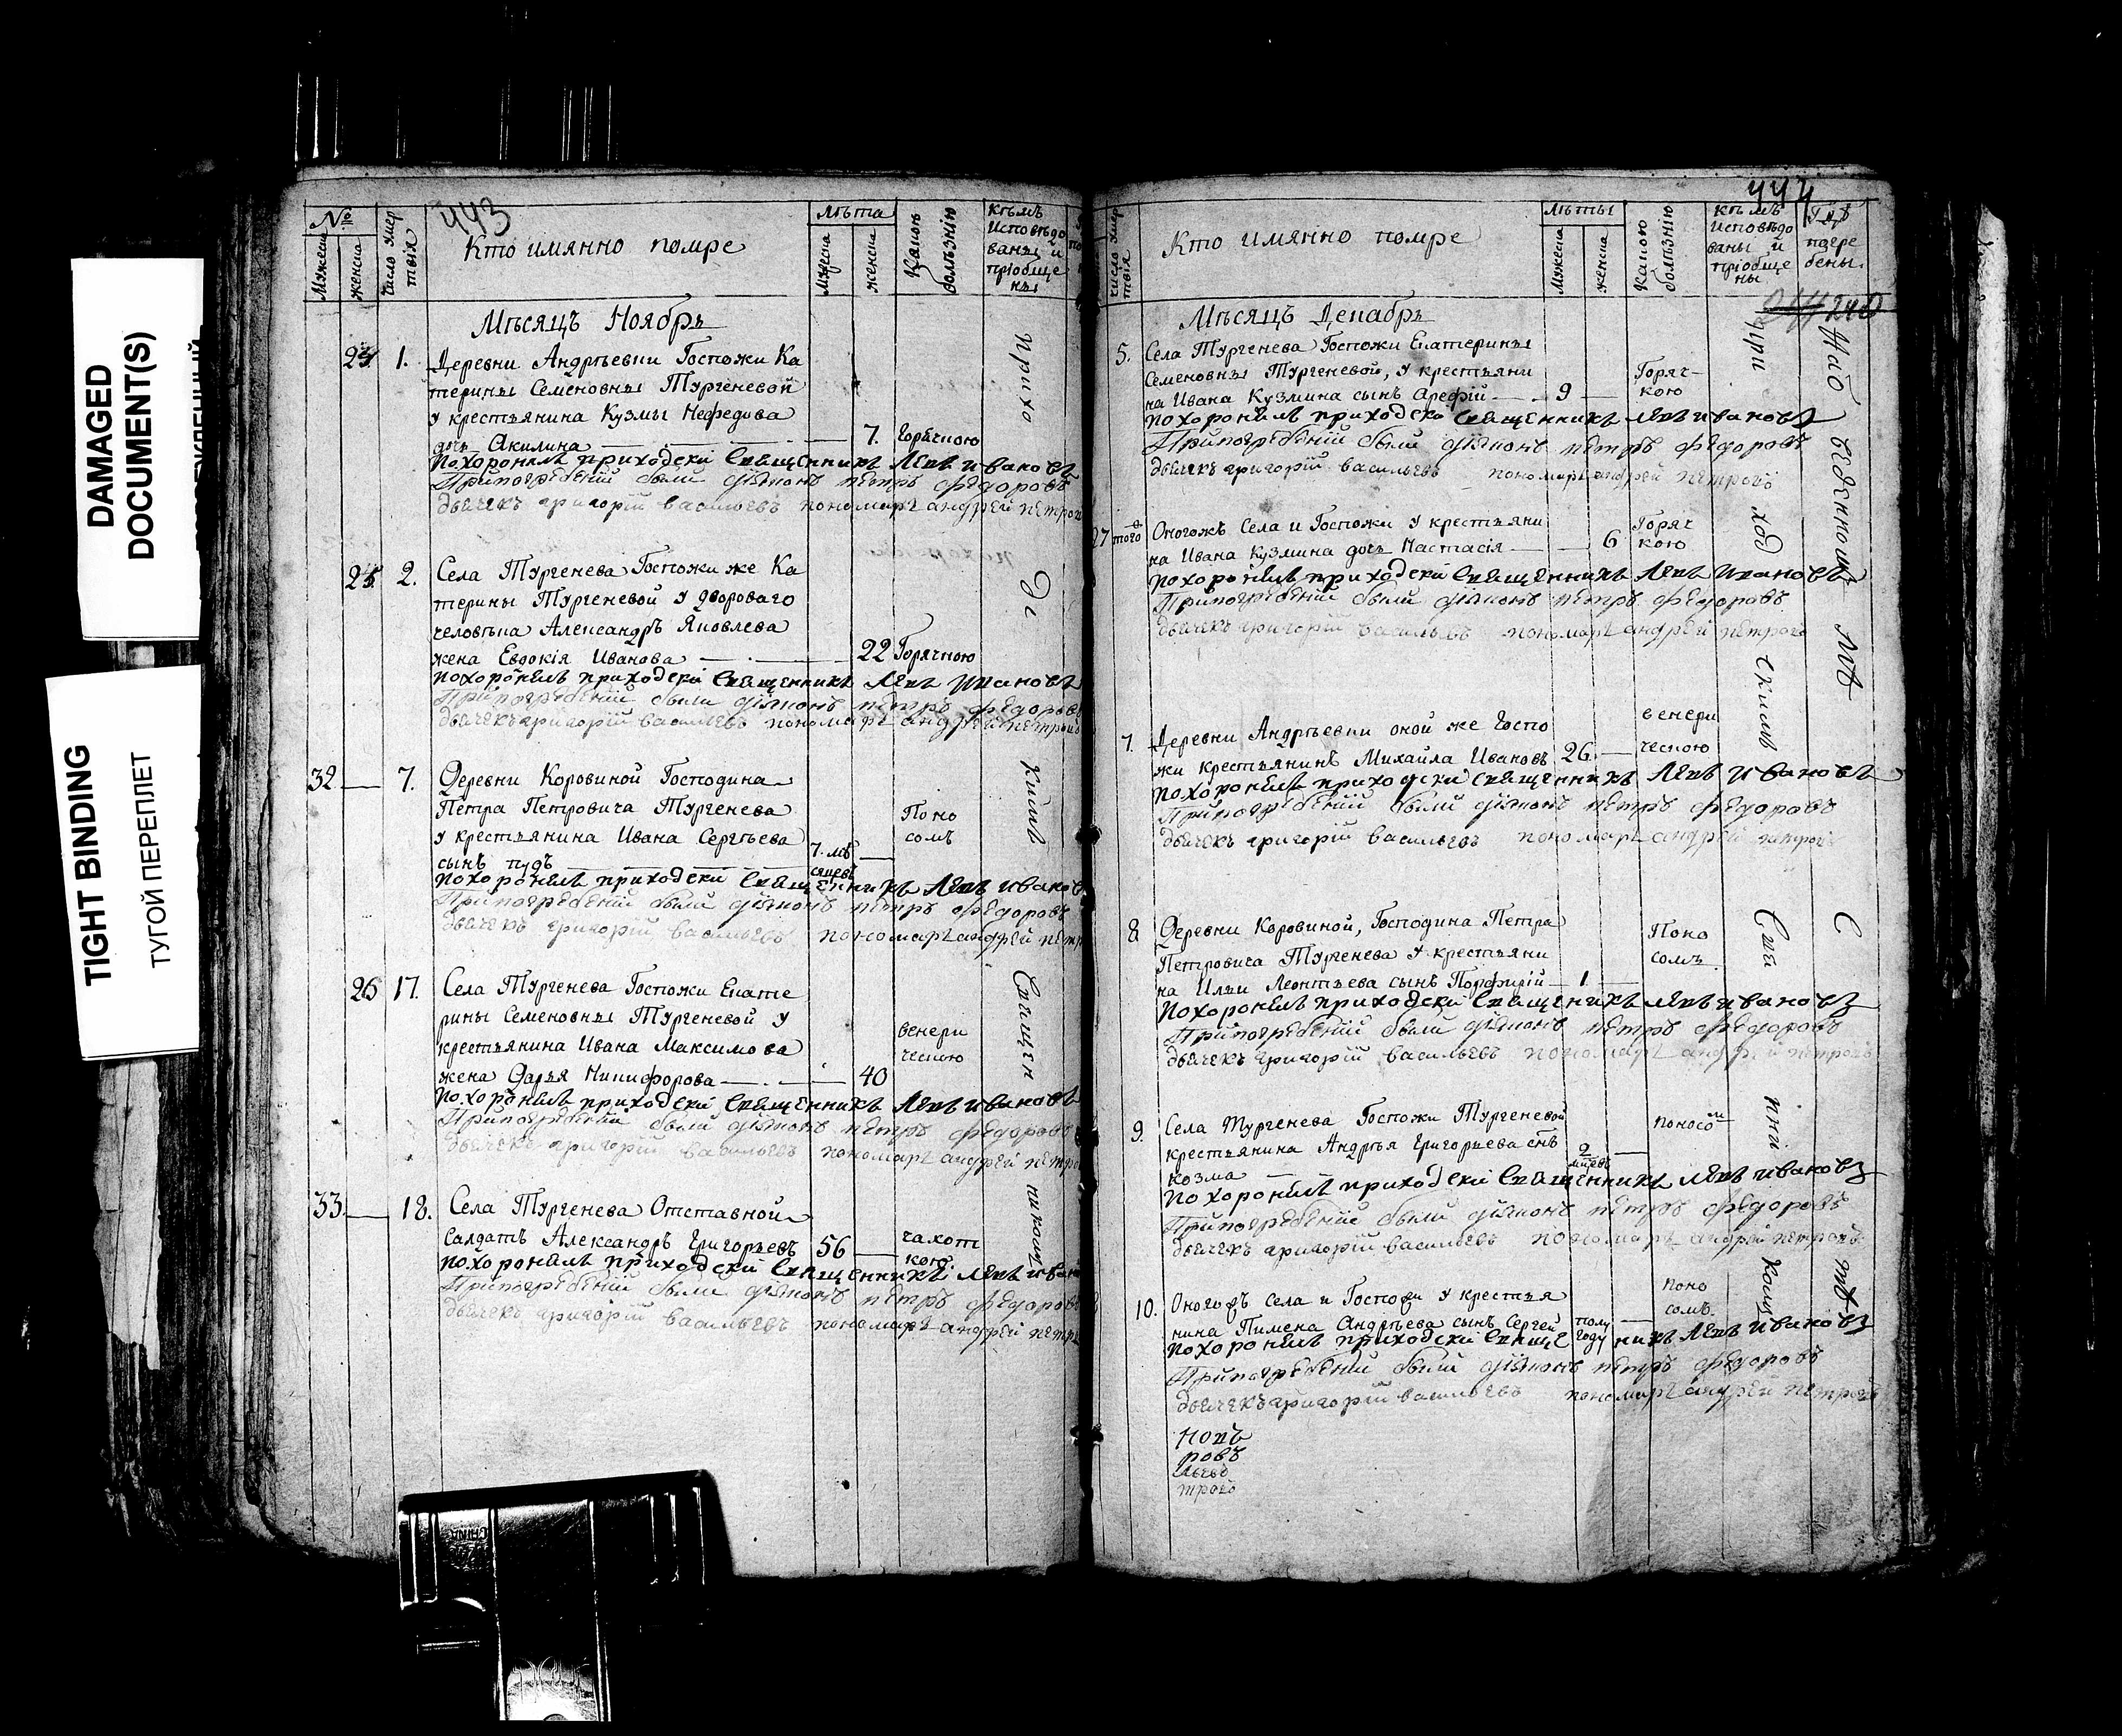 DAMAGED
DOCUMENT(S)
TIGHT BINDING
ТУГОЙ ПЕРЕПЛЕТ
443
№
Мужеска
женска
число умер
твія
Кто имянно помре
лѣта
Мужеска
женска
Какою
болѣзнію
кѣмъ
Исповѣдо
ваны и
пріобще
ны
Мѣсяцъ Ноябрь
1.
Деревни Андрѣевки Госпожи Ка
терины Семеновны Тургеневой
у крестьянина Кузмы Нефедова
дочь Акилина 7. Горячкою
Похоронилъ приходски Священникъ Левъ Ивановъ
Припогребеніи были діяконъ петръ федоровъ
дьячекъ григорій васильевъ пономарь андрей петровъ
2.
Села Тургенева Госпожи же Ка
терины Тургеневой у двороваго
человѣка Александръ Яковлева
жена Евдокія Иванова 22 Горячкою
похоронилъ приходски Священникъ Левъ Ивановъ
Припогребеніи были діяконъ петръ федоровъ
дьячекъ григорій васильевъ пономарь андрей петровъ
32. 7.
Деревни Коровиной Господина
Петра Петровича Тургенева
у крестьянина Ивана Сергѣева
сынъ 7. мѣ
сяцевъ
Поно
сомъ
похоронилъ приходски Священникъ Левъ Ивановъ
Припогребеніи были діяконъ петръ федоровъ
дьячекъ григорій васильевъ пономарь андрей петр
26 17.
Села Тургенева Госпожи Екате
рины Семеновны Тургеневой у
крестьянина Ивана Максимова
жена Дарья Никифорова 40
венери
ческою
похоронилъ приходски Священникъ Левъ Ивановъ
Припогребеніи были діяконъ петръ федоровъ
дьячекъ григорій васильевъ пономарь андрей петро
33. 18.
Села Тургенева Отставной
Салдатъ Александръ Григорьевъ 56
чахот
кою
похоронилъ приходски Священникъ Левъ Иван
Припогребеніи были діяконъ петръ федоровъ
дьячекъ григорій васильевъ пономарь андрей петр
прихо
дс
кимъ
Священ
никомъ
444
число умер
твія
Кто имянно помре
лѣты
Мужеска
женска
Какою
болѣзнію
кѣмъ
Исповѣдо
ваны и
пріобще
ны
Гдѣ
погре
бены.
240
Мѣсяцъ Декабрь
5.
Села Тургенева Госпожи Екатерины
Семеновны Тургеневой, у крестьяни
на Ивана Кузмина сынъ Арефій 9
Горяч-
кою
похоронилъ приходски Священникъ Левъ Ивановъ
Припогребеніи были діяконъ петръ федоровъ
дьячекъ григорій васильевъ пономарь андрей петровъ
27 того
Оногожъ Села и Госпожи у крестьяни
на Ивана Кузмина дочь Настасія 6
Горяч
кою
похоронилъ приходски Священникъ Левъ Ивановъ
Припогребеніи были діяконъ петръ федоровъ
дьячекъ григорій васильевъ пономарь андрей петровъ
7.
Деревни Андрѣевки оной же Госпо
жи крестьянинъ Михайла Ивановъ 26
венери
ческою
похоронилъ приходски Священникъ Левъ Ивановъ
Припогребеніи были діяконъ петръ федоровъ
дьячекъ григорій васильевъ пономарь андрей петровъ
8
Деревни Коровиной, Господина Петра
Петровича Тургенева у крестьяни
на Ильи Леонтьева сынъ Порфирій 1
Поно
сомъ
Похоронилъ приходски Священникъ Левъ Ивановъ
Припогребеніи были діяконъ петръ федоровъ
дьячекъ григорій васильевъ пономарь андрей петровъ
9.
Села Тургенева Госпожи Тургеневой
крестьянина Андрѣя Григорьева снъ
козма 2
мцевъ
поносом
Похоронилъ приходски Священникъ Левъ Ивановъ
Припогребеніи были діяконъ петръ федоровъ
дьячекъ григорій васильевъ пономарь андрей петровъ
10.
Оногожъ села и Госпожи у крестья
нина Пимена Андрѣева сынъ Сергей полу
году
поно
сомъ
похоронилъ приходски Священникъ Левъ Ивановъ
Припогребеніи были діяконъ петръ федоровъ
дьячекъ григорій васильевъ пономарь андрей петровъ
ровъ